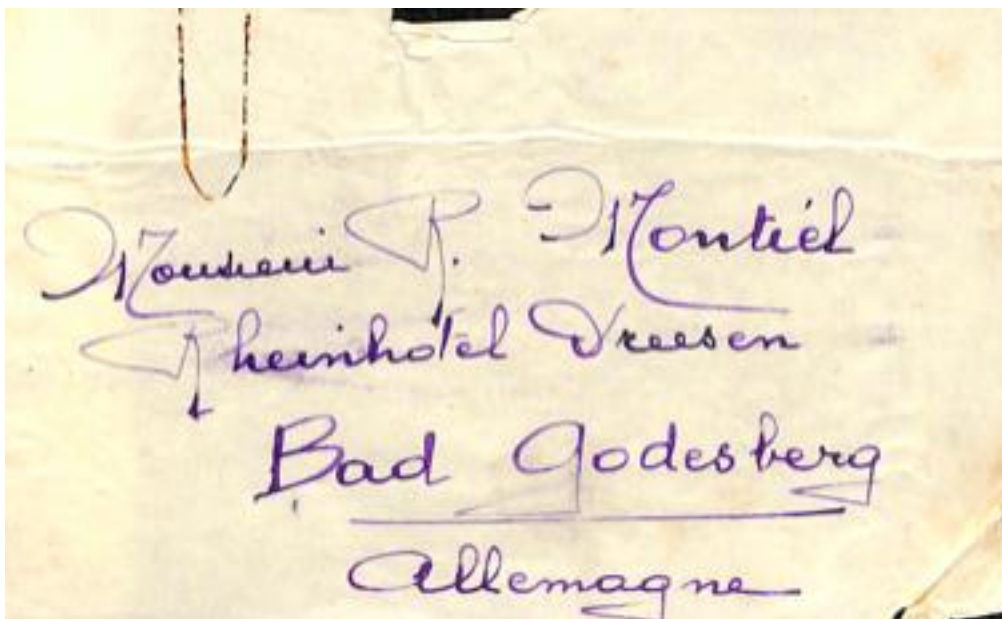 Monsieur P. Montiél
Rheinhotel Dreesen
Bad Godesberg
Allemagne